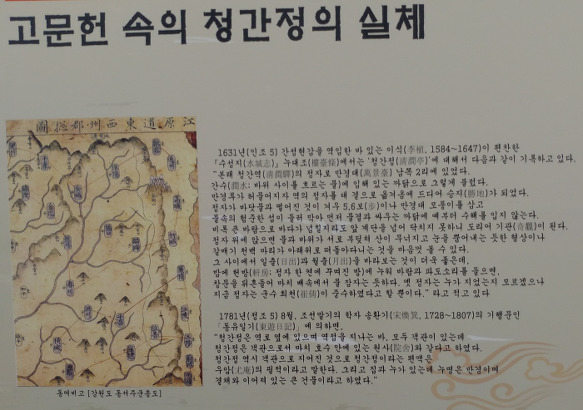 고문헌 속의 청간정의 실체
江原道東西州郡摠圖
1631년(인조 5) 간성현감을 역임한 바 있는 이식(李植, 1584~1647)이 편찬한
「수성지(水城志)」 누대조(樓臺條)에서는 '청간정(淸澗亭)'에 대해서 다음과 같이 기록하고 있다.
"본래 청간역(淸澗驛)의 정자로 만경대(萬景臺) 남쪽 2리에 있었다.
간수(澗水: 바위 사이를 흐르는 물)에 임해 있는 까닭으로 그렇게 불렀다.
만경루가 허물어지자 역의 정자를 대 곁으로 옮겨옴에 드디어 승지(勝地)가 되었다.
정자가 바닷물과 떨어진 것이 겨우 5,6보(步)이나 만경대 모퉁이를 삼고
물속의 험준한 섬이 둘러 막아 먼저 물결과 싸우는 까닭에 예부터 수해를 입지 않는다.
비록 큰 바람으로 바다가 넘칠지라도 앞 계단을 넘어 닥치지 못하니 도리어 기관(奇觀)이 된다.
정자 위에 앉으면 물과 바위가 서로 부딪쳐 산이 무너지고 눈을 뿜어내는 듯한 형상이나
갈매기 천백 마리가 아래위로 떠돌아다니는 것을 마음껏 볼 수 있다.
그 사이에서 일출(日出)과 월출(月出)을 바라보는 것이 더욱 좋은데,
밤에 헌방(軒房: 정자 한 편에 꾸며진 방)에 누워 바람과 파도소리를 들으면,
창문을 뒤흔들어 마치 배속에서 잠자는 듯하다. 옛 정자는 누가 지었는지 모르겠으나
지금 정자는 군수 최천이 중수하였다고 할 뿐이다." 라고 적고 있다
1781년(정조 5) 8월, 조선말기의 학자 송환기(宋煥箕, 1728~1807)의 기행문인
「동유일기(東遊日記)」에 의하면,
"청간정은 역로 옆에 있으며 역참을 지나는 바, 모두 객관이 있는데
청간정은 객관으로서 마치 호수 안에 있는 원사(院舍)와 같다라고 하였다.
청간정 역시 객관으로 지어진 것으로 청간정이라는 편액은
우암(尤庵)의 필적이라고 말한다. 그리고 집과 누가 있는데 누명은 만경이며
곁채와 이어져 있는 큰 건물이라고 하였다."
동여비고 [강원도 동서주군총도]